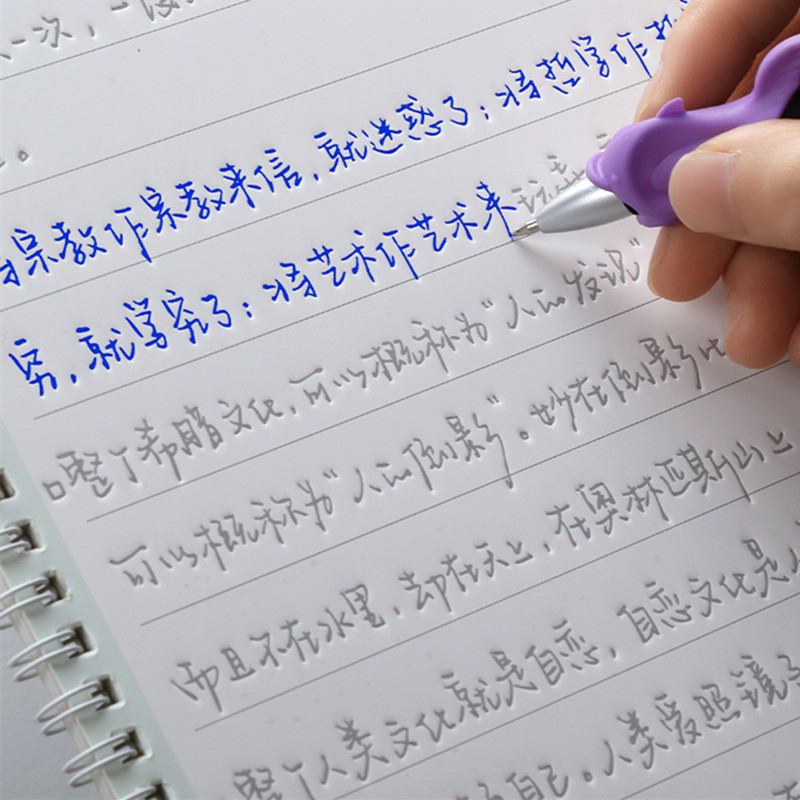 一次，一
。
宗教作宗教来信，就迷惑了；将哲学作
穷，就学究了；将艺术作艺术来玩
整个希腊文化，可以概称为“人的发现”
可以概称为“人的倒影”。妙在倒影
而且不在水里，却在天上，在奥林匹斯山上
整个人类文化就是自恋，自恋文化是
自己。人类爱照镜子